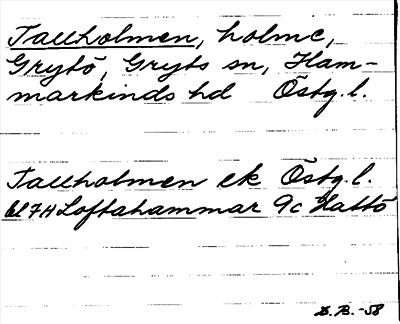 Tallholmen, holme,
Grytö, Gryts sn, Ham-
markinds hd Östg. l.
Tallholmen ek Östg. l.
bl 7H Loftahammar 9c Hattö
D. B. -58